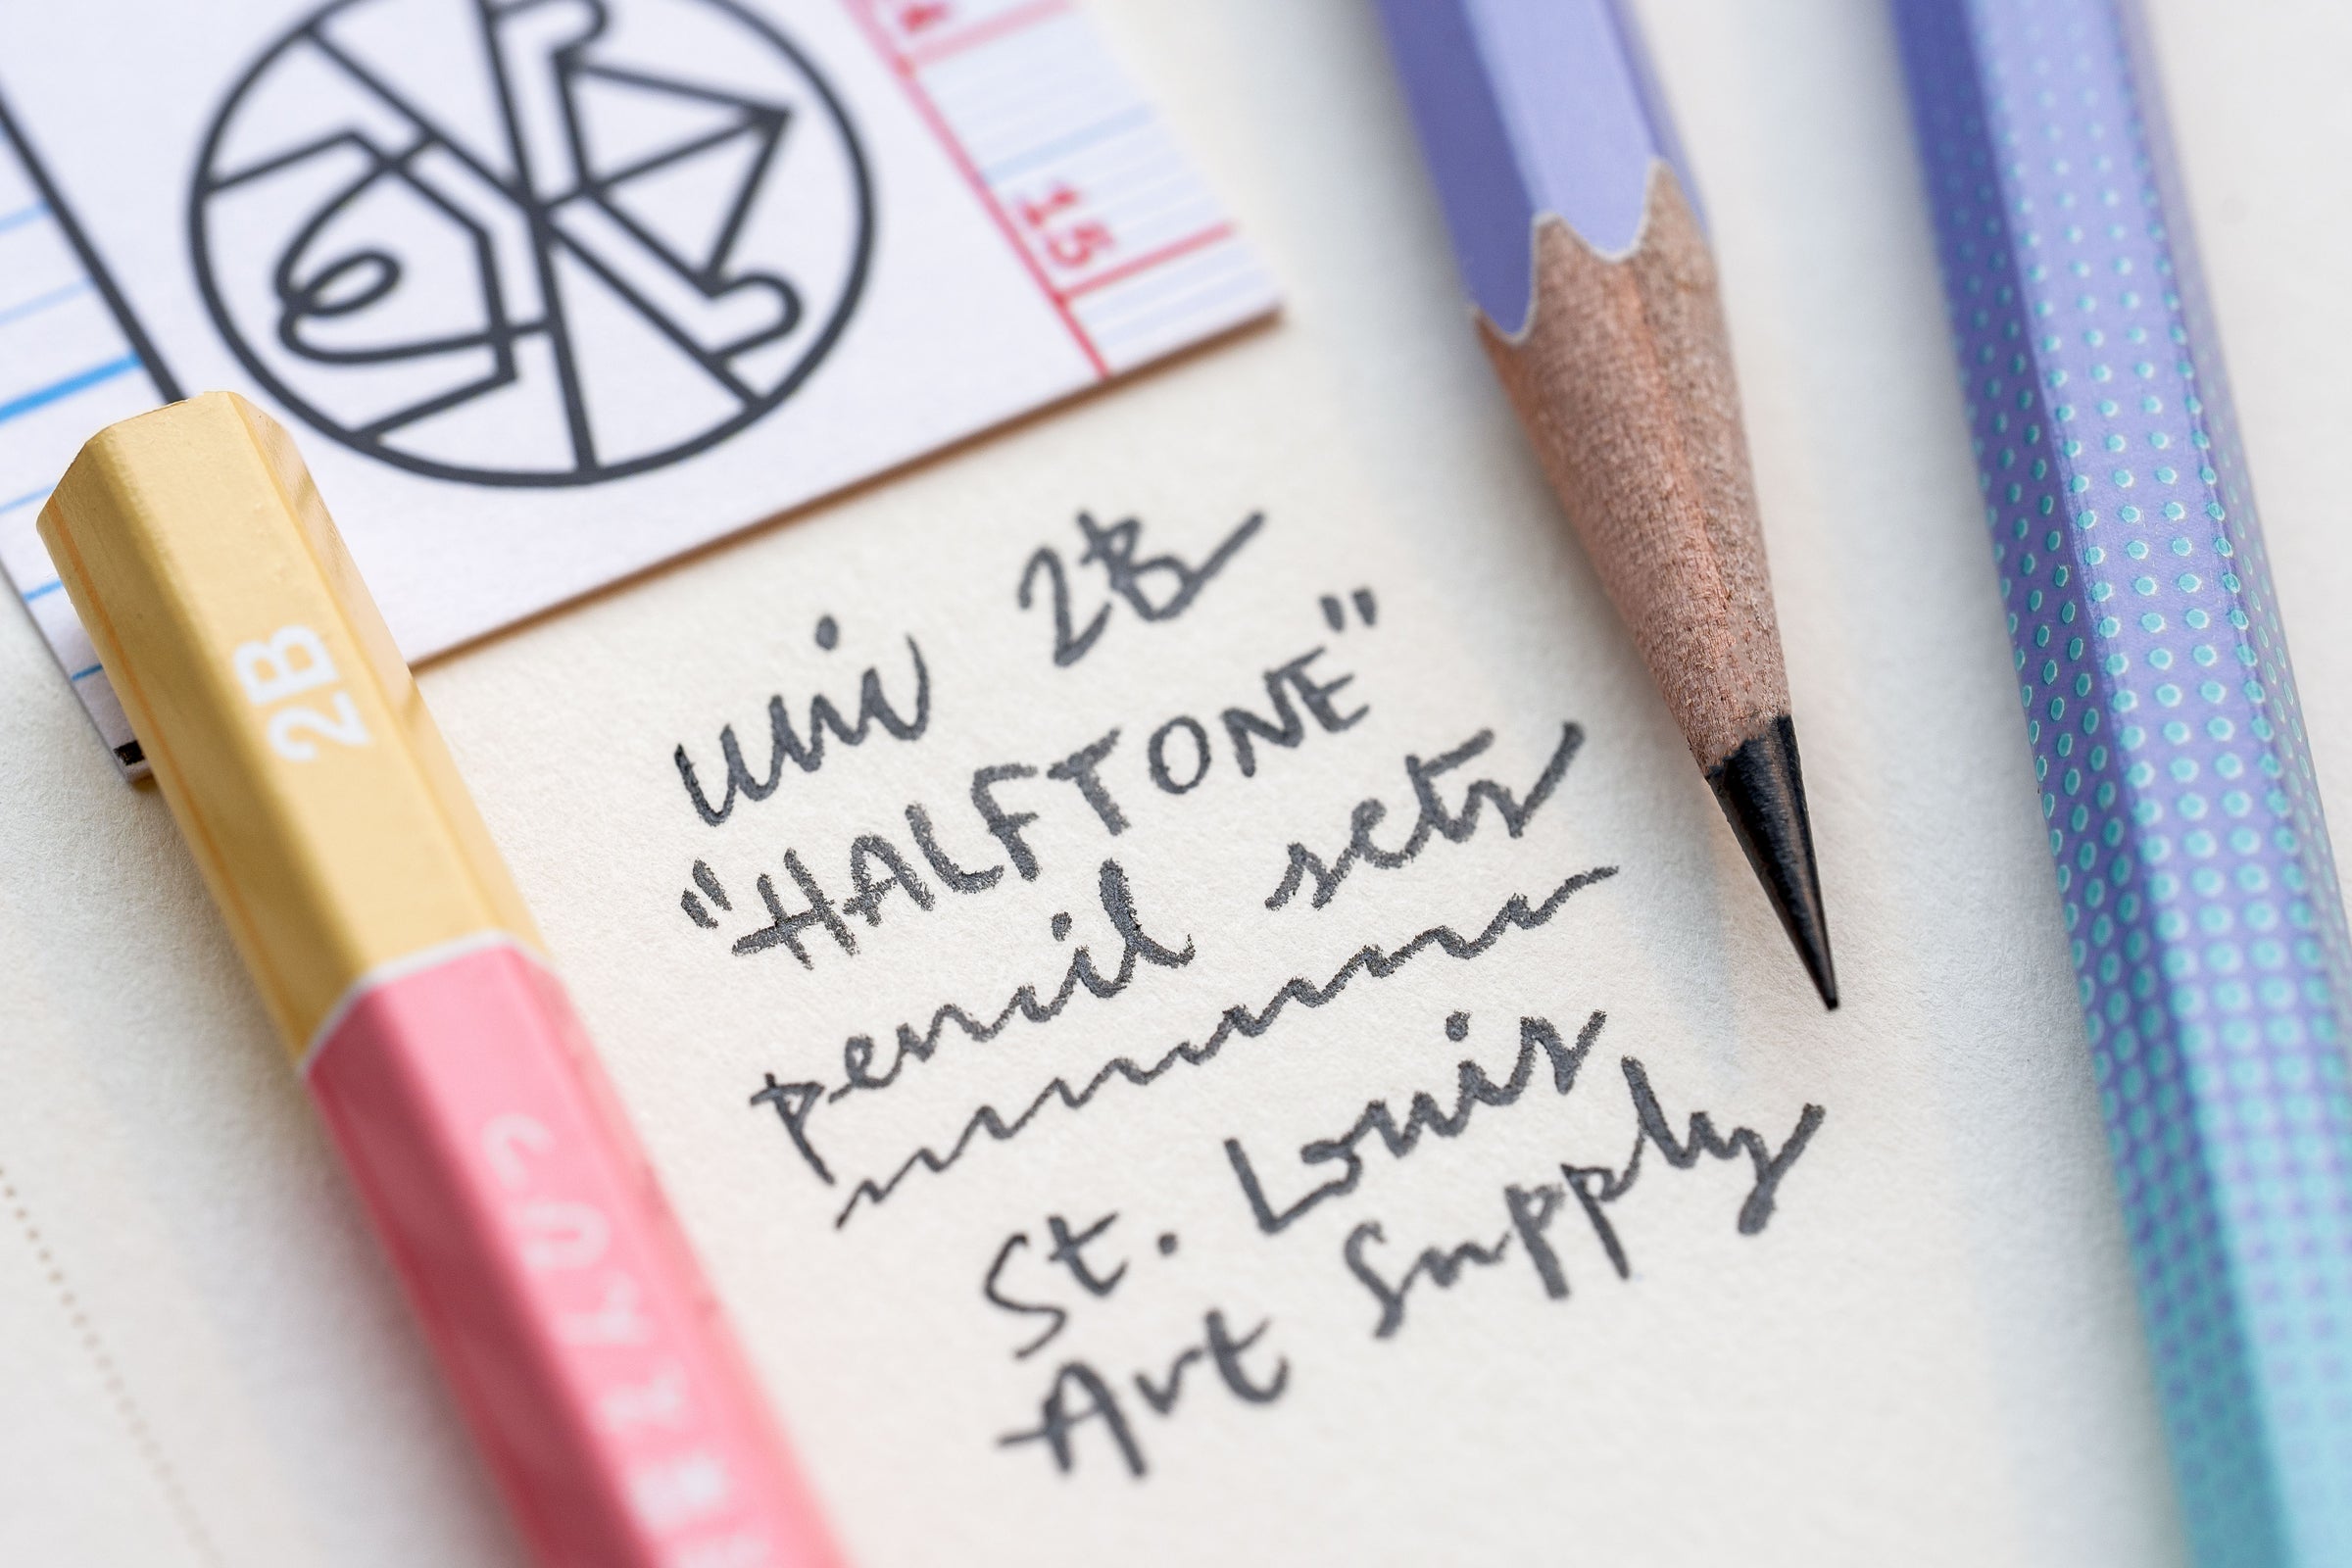 15
2B
uni 2B
"HALFTONE"
pencil sets
St. Louis
Art Supply